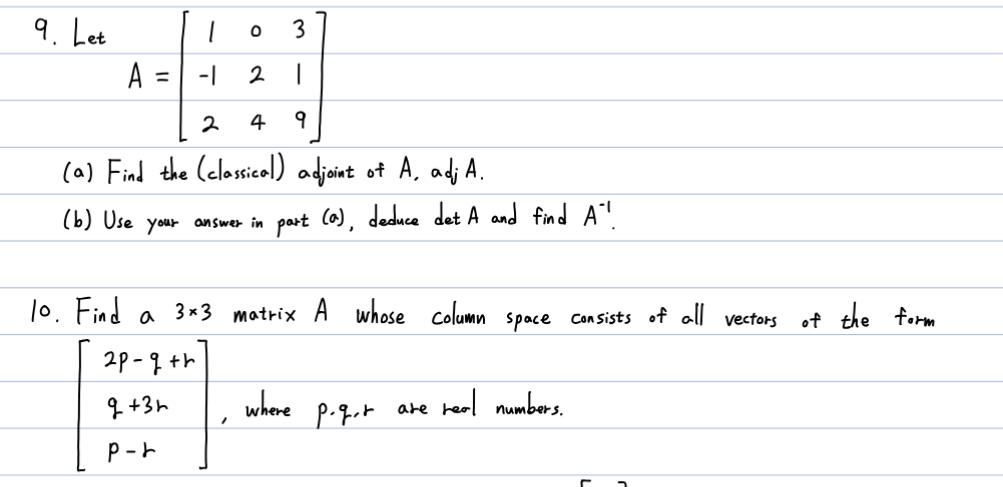 9. Let
A = [ 1 0 3
-1 2 1
2 4 9 ]
(a) Find the (classical) adjoint of A, adj A.
(b) Use your answer in part (a), deduce det A and find A⁻¹.
10. Find a 3×3 matrix A whose column space consists of all vectors of the form
[ 2p - q + r
q + 3r
p - r ] , where p.q.r are real numbers.